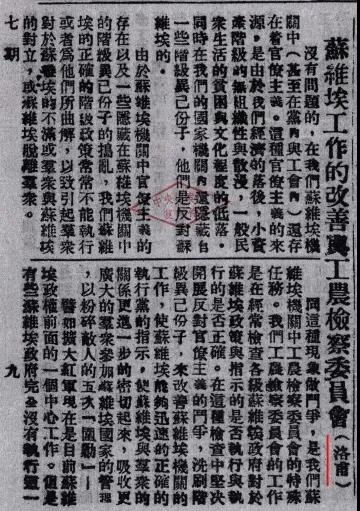 蘇維埃工作的改善與工農檢察委員會（洛甫）
沒有問題的，在我們蘇維埃機
關中（甚至在黨內與工會內）還存
在着官僚主義。這種官僚主義的來
源，是由於我們經濟的落後，小資
產階級的無組織性與散漫，一般民
衆生活的貧困與文化程度的低落。
同時在我們的國家機關內還隱藏着
一些階級異己份子，他們是反對蘇
維埃的。
由於蘇維埃機關中官僚主義的
存在以及一些隱藏在蘇維埃機關中
的階級異己份子的搗亂，我們蘇維
埃的正確的階級政策常常不能執行
或者爲他們所曲解，以致引起羣衆
對於蘇維埃的不滿或羣衆與蘇維埃
的對立，或蘇維埃脫離羣衆。
同這種現象做鬥爭，是我們蘇
維埃機關中工農檢察委員會的特殊
任務。我們工農檢察委員會的工作
是在經常檢查各級蘇維埃政府對於
蘇維埃政策與指示的是否執行與執
行的是否正確。在這種檢查中堅決
開展反對官僚主義的鬥爭，洗刷階
級異己份子，來改善蘇維埃機關的
工作，使蘇維埃能夠迅速的正確的
執行黨的指示，使蘇維埃與羣衆的
關係更進一步的密切起來，吸收更
廣大的羣衆參加蘇維埃國家的管理
，以粉碎敵人的五次「圍剿」——
譬如擴大紅軍現在是目前蘇維
埃政權前面的一個中心工作。但是
有些蘇維埃政府完全沒有執行這一
七期
九